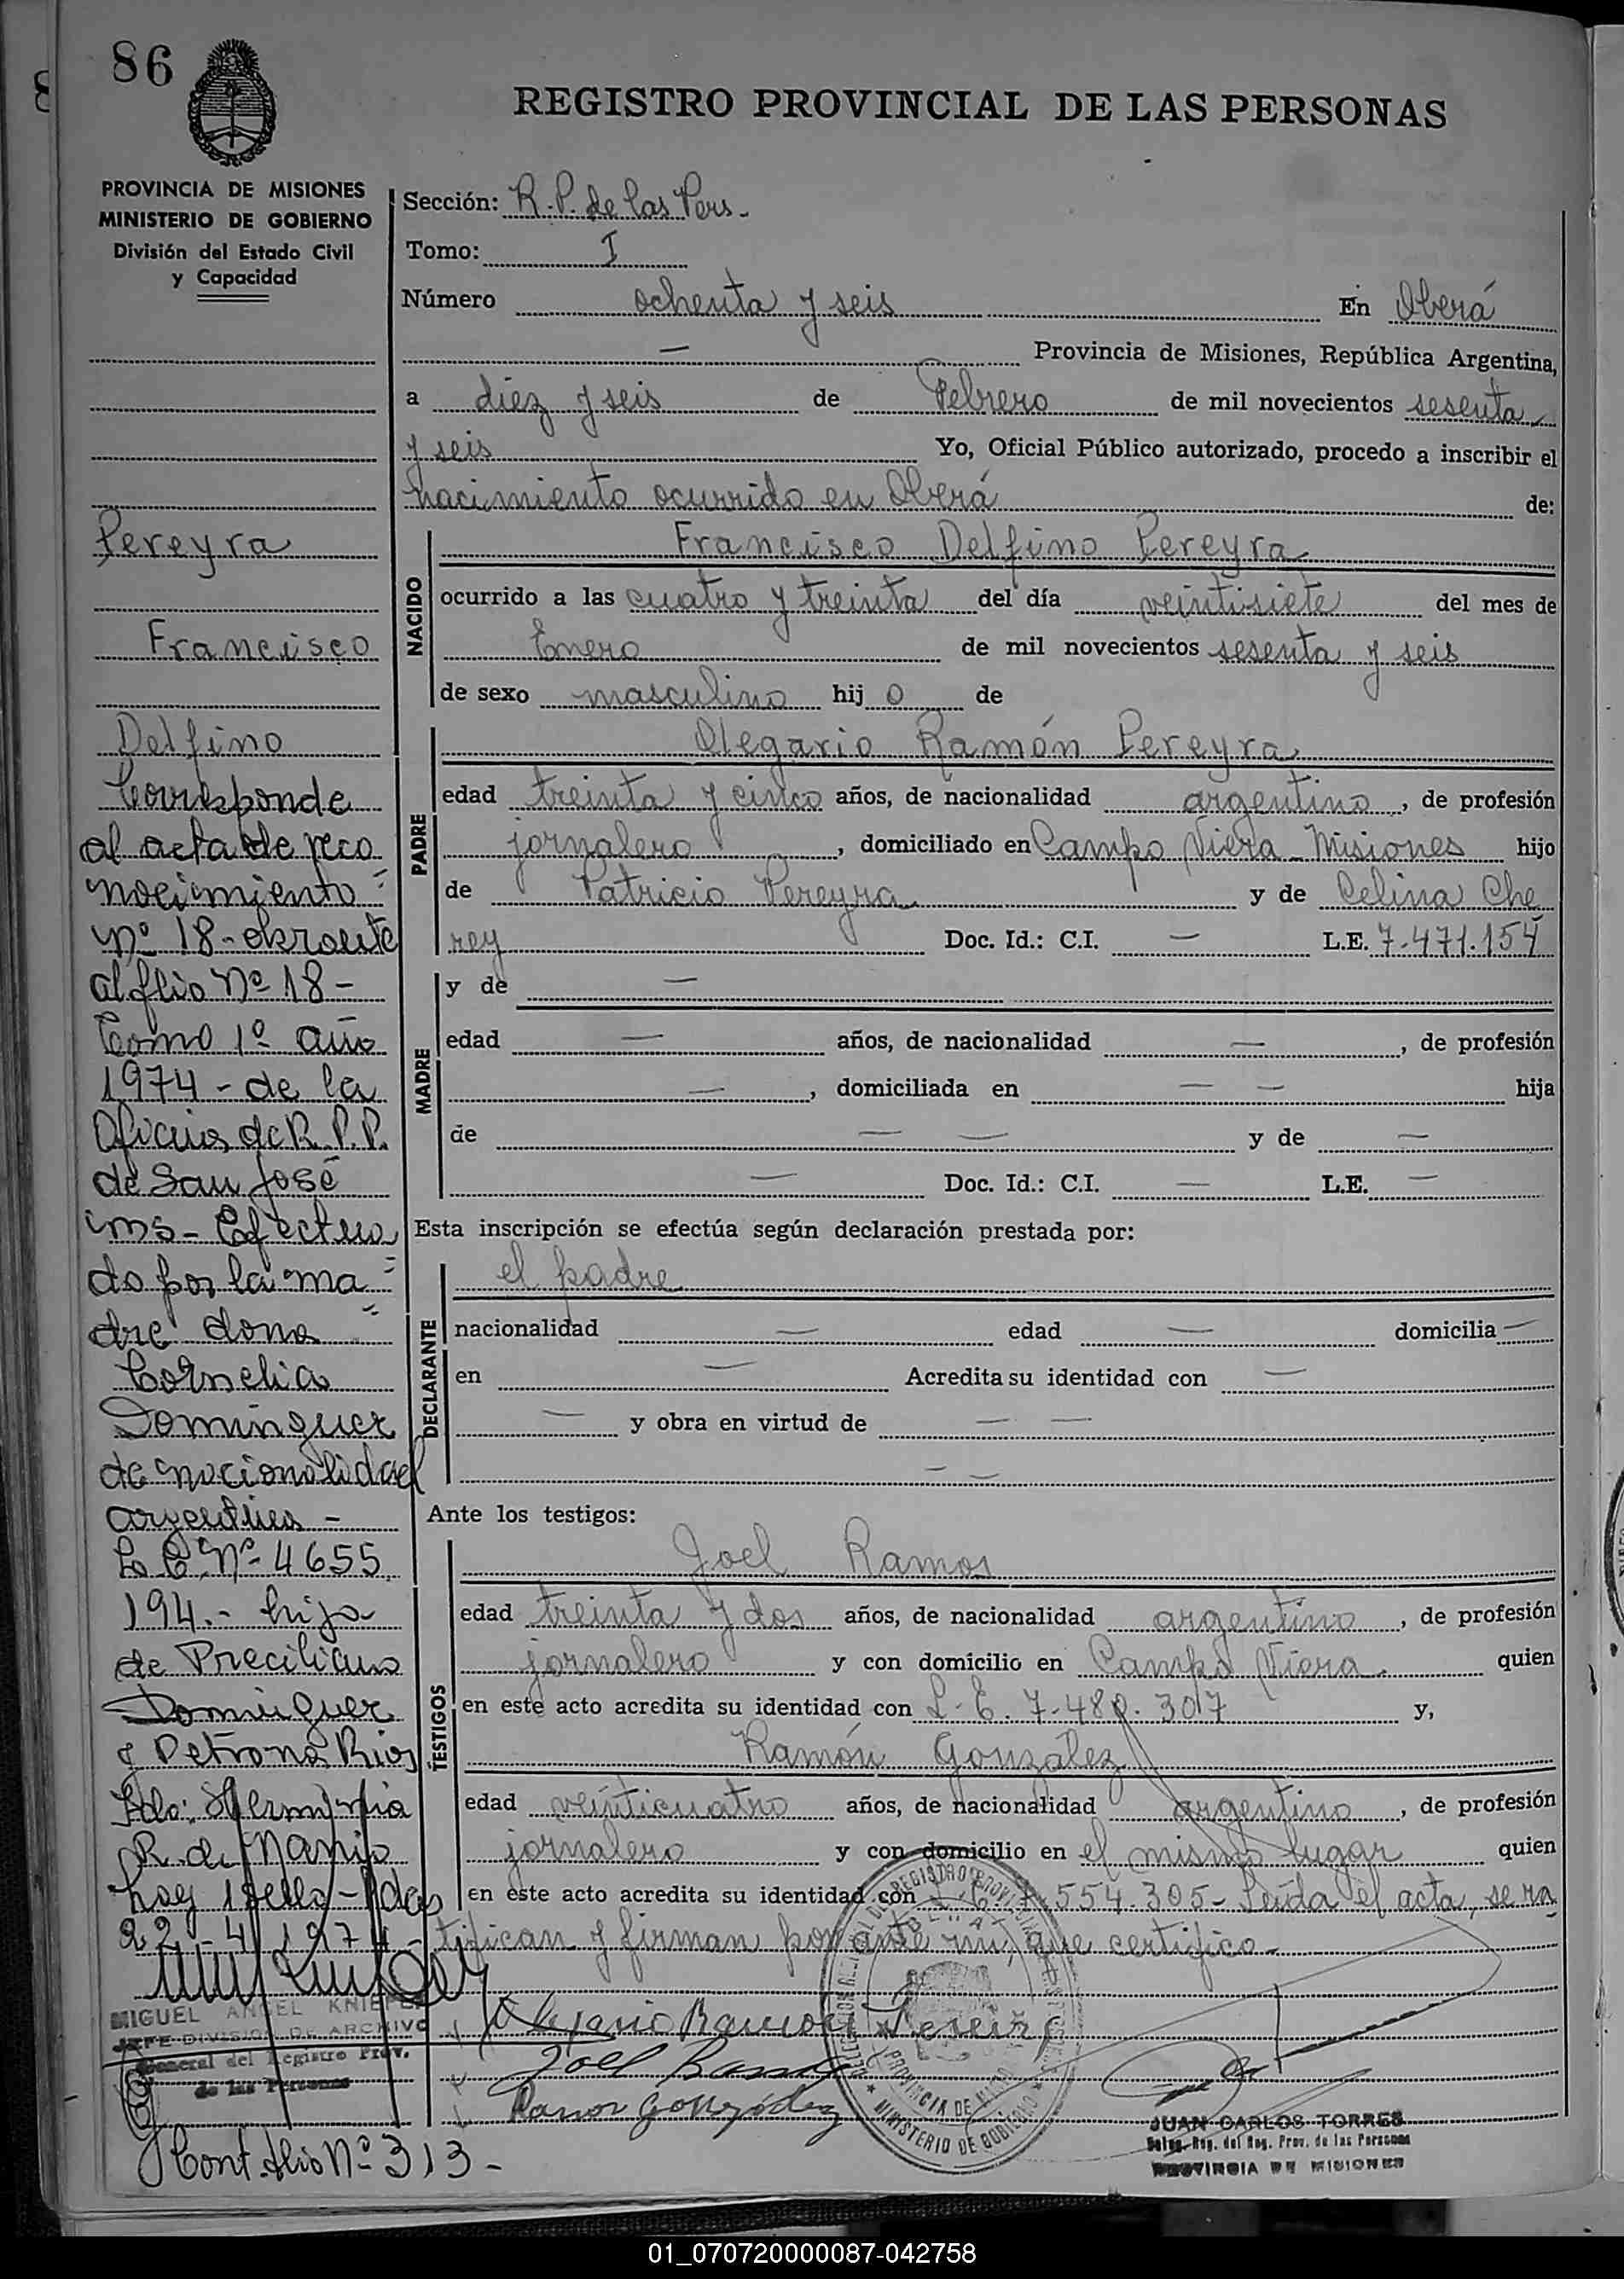 86
REGISTRO PROVINCIAL DE LAS PERSONAS
PROVINCIA DE MISIONES
MINISTERIO DE GOBIERNO
División del Estado Civil
y Capacidad
Sección: R.P. de las Pers.
Tomo: I
Número ochenta y seis En Oberá
— Provincia de Misiones, República Argentina,
a diez y seis de Febrero de mil novecientos sesenta
y seis Yo, Oficial Público autorizado, procedo a inscribir el
nacimiento ocurrido en Oberá de:
NACIDO
Francisco Delfino Pereyra
ocurrido a las cuatro y treinta del día veintisiete del mes de
Enero de mil novecientos sesenta y seis
de sexo masculino hij o de
PADRE
Olegario Ramón Pereyra
edad treinta y cinco años, de nacionalidad argentino, de profesión
jornalero, domiciliado en Campo Viera - Misiones hijo
de Patricio Pereyra y de Celina Che
rey Doc. Id.: C.I. — L.E. 7.471.154
MADRE
y de —
edad — años, de nacionalidad —, de profesión
—, domiciliada en — — hija
de — — y de —
— Doc. Id.: C.I. — L.E. —
Esta inscripción se efectúa según declaración prestada por:
DECLARANTE
el padre
nacionalidad — edad — domicilia —
en — Acredita su identidad con —
— y obra en virtud de — —
— —
Ante los testigos:
TESTIGOS
Joel Ramos
edad treinta y dos años, de nacionalidad argentino, de profesión
jornalero y con domicilio en Campo Viera quien
en este acto acredita su identidad con L.E. 7.480.307 y,
Ramón Gonzalez
edad veinticuatro años, de nacionalidad argentino, de profesión
jornalero y con domicilio en el mismo lugar quien
en este acto acredita su identidad con 554.305 - Leída el acta, se ra
tifican y firman por ante mí, que certifico -
Olegario Ramon Pereira
Joel Ramos
Ramon Gonzalez
JUAN CARLOS TORRES
Deleg. Reg. del Reg. Prov. de las Personas
PROVINCIA DE MISIONES
PROVINCIA DE
MINISTERIO DE GOBIERNO
Pereyra
Francisco
Delfino
Corresponde
al acta de reco
nocimiento
nº 18 - obrante
al flio Nº 18 -
tomo 1º año
1974 - de la
Oficina de R.P.P.
de San José
ms - Efectua
do por la ma
dre dona
Cornelia
Dominguez
de nacionalidad
argentina -
L.C. Nº 4655
194.- hija
de Preciliano
Dominguez
y Petrona Rios
Fdo: Herminia
R. de
hay 1 sello - Pdas
22 - 4 - 1974 -
MIGUEL ANGEL KNIEPER
JEFE DIVISION DE ARCHIVO
General del Registro Prov.
de las Personas
Cont. flio Nº 313 -
01_070720000087-042758